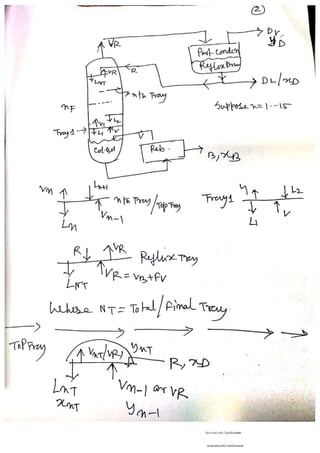 ②
VR
DV, yD
Part. Conden
Reflux Drum
VR
R
LNT
DL/xD
nth Tray
nF
Suppose n=1--15
Tray1
L2
L1
V
V
Col. Bot
Reb.
B, xB
Vn
Ln+1
nth Tray/Top Tray
Ln
Vn-1
Tray1
V1
L2
L1
V
R
VR
Reflux Tray
LNT
VR = VB+FV
Where NT = Total/Final Tray.
Top Tray
VNT/VR1
yNT
R, xD
LNT
xNT
Vn-1 or VR
yn-1
Scanned with CamScanner
Scanned with CamScanner